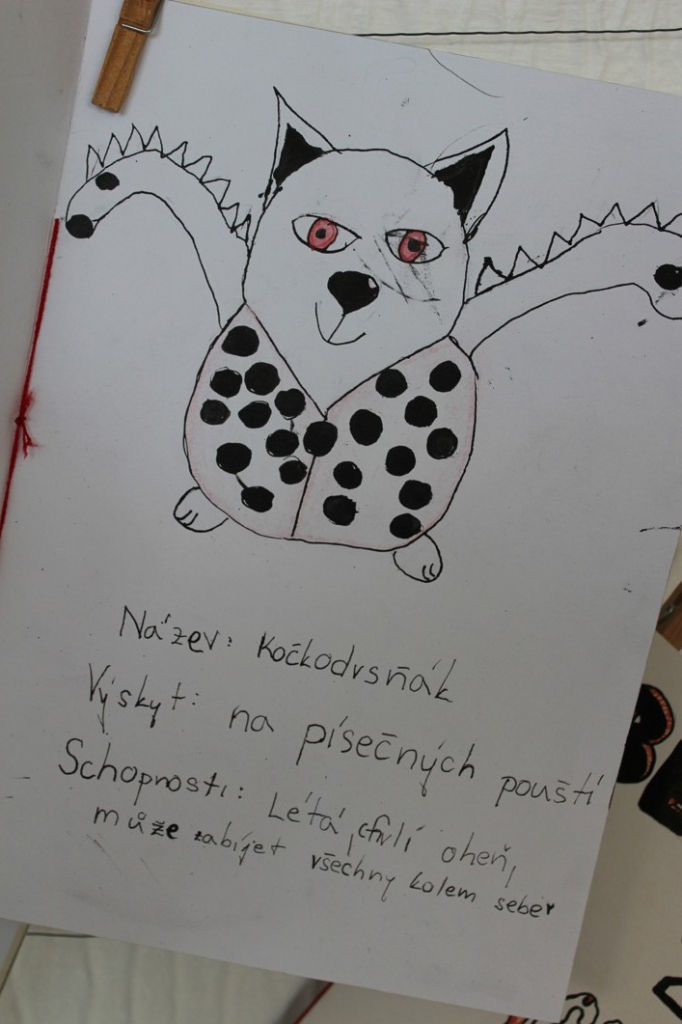 Název: Kočkodrsňák
Výskyt: na písečných pouští
Schopnosti: Létá, chrlí oheň,
může zabíjet všechny kolem seber